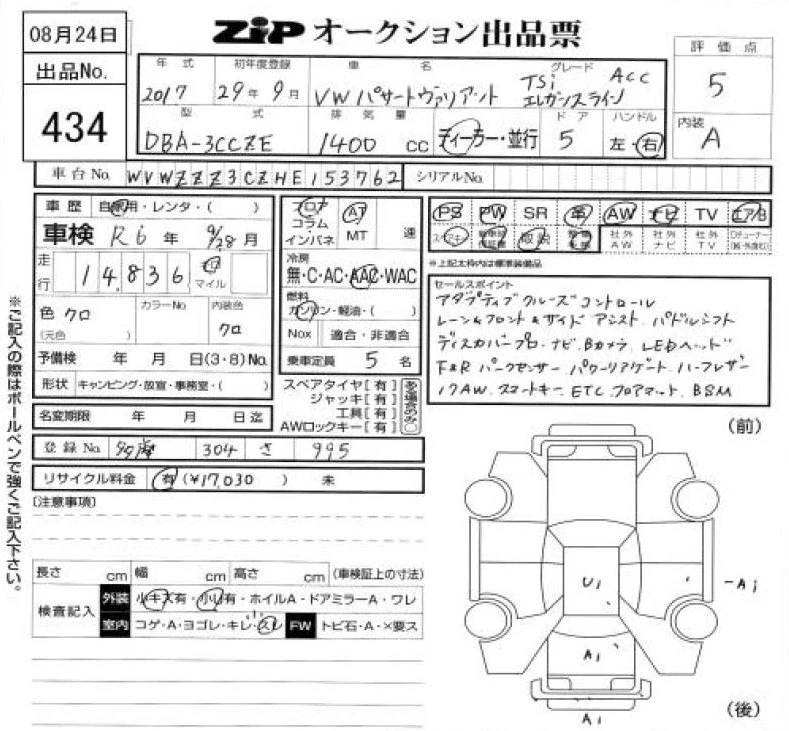 08月24日
ZIP オークション出品票
出品No.
434
年式 初年度登録 車名 グレード
2017 29年9月 VW パサートヴァリアント TSi ACC エレガンスライン
評価点
5
型式 排気量 ドア ハンドル
DBA-3CCZE 1400 cc ディーラー・並行 5 左・右
内装
A
車台No. WVWZZZ3CZHE153762 シリアルNo.
車歴 自家用・レンタ・( )
車検 R6年 9/28月
走行 14,836 マイル
色 クロ カラーNo 内装色 クロ
(元色)
予備検 年 月 日(3・8)No.
形状 キャンピング・放宣・事務室・( )
名変期限 年 月 日迄
フロア コラム インパネ
AT MT 速
冷房
無・C・AC・AAC・WAC
燃料
ガソリン・軽油・( )
Nox 適合・非適合
乗車定員 5 名
スペアタイヤ[有]
ジャッキ[有]
工具[有]
AWロックキー[有]
ある場合のみ○
PS PW SR 革 AW ナビ TV エアB
取説 社外AW 社外ナビ 社外TV
*上記太枠内は標準装備品
セールスポイント
アダプティブクルーズコントロール
レーン&フロント&サイドアシスト パドルシフト
ディスカバープロ・ナビ、Bカメラ LEDヘッド
F&R パークセンサー パワーリアゲート ハーフレザー
17AW. スマートキー ETC. フロアマット. BSM
登録No 304 さ 995
リサイクル料金 有 (¥17,030) 未
[注意事項]
長さ cm 幅 cm 高さ cm (車検証上の寸法)
検査記入
外装 小キズ有・小凹有・ホイルA・ドアミラーA・ワレ
室内 コゲ・A・ヨゴレ・キレ・スレ FW トビ石・A・×要ス
※ご記入の際はボールペンで強くご記入下さい。
(前)
U1
A1
A1
A1
(後)